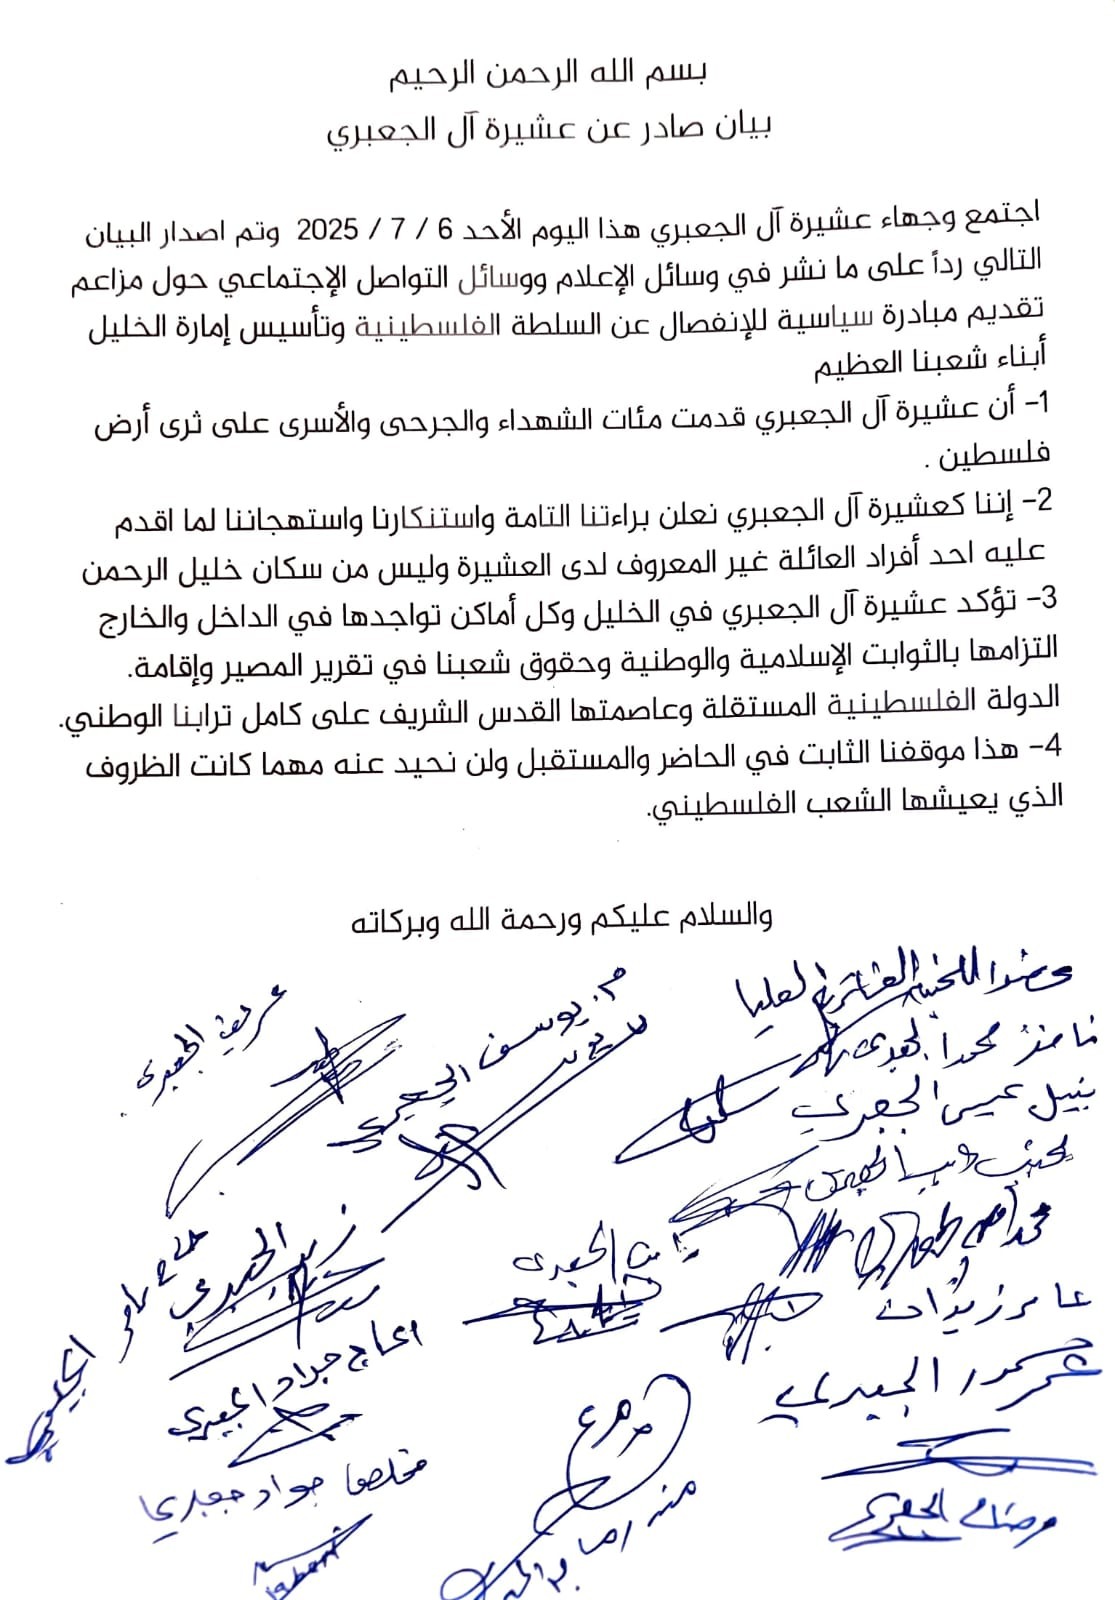 بسم الله الرحمن الرحيم
بيان صادر عن عشيرة آل الجعبري
اجتمع وجهاء عشيرة آل الجعبري هذا اليوم الأحد 6 / 7 / 2025 وتم اصدار البيان
التالي رداً على ما نشر في وسائل الإعلام ووسائل التواصل الإجتماعي حول مزاعم
تقديم مبادرة سياسية للإنفصال عن السلطة الفلسطينية وتأسيس إمارة الخليل
أبناء شعبنا العظيم
1- أن عشيرة آل الجعبري قدمت مئات الشهداء والجرحى والأسرى على ثرى أرض
فلسطين .
2- إننا كعشيرة آل الجعبري نعلن براءتنا التامة واستنكارنا واستهجاننا لما اقدم
عليه احد أفراد العائلة غير المعروف لدى العشيرة وليس من سكان خليل الرحمن
3- تؤكد عشيرة آل الجعبري في الخليل وكل أماكن تواجدها في الداخل والخارج
التزامها بالثوابت الإسلامية والوطنية وحقوق شعبنا في تقرير المصير وإقامة.
الدولة الفلسطينية المستقلة وعاصمتها القدس الشريف على كامل ترابنا الوطني.
4- هذا موقفنا الثابت في الحاضر والمستقبل ولن نحيد عنه مهما كانت الظروف
الذي يعيشها الشعب الفلسطيني.
والسلام عليكم ورحمة الله وبركاته
العليا
م. يوسف الجعبري
الجعبري
نبيل عيسى الجعبري
الجعبري
الجعبري
الحاج جواد الجعبري
الجعبري
جواد جعبري
الجعبري